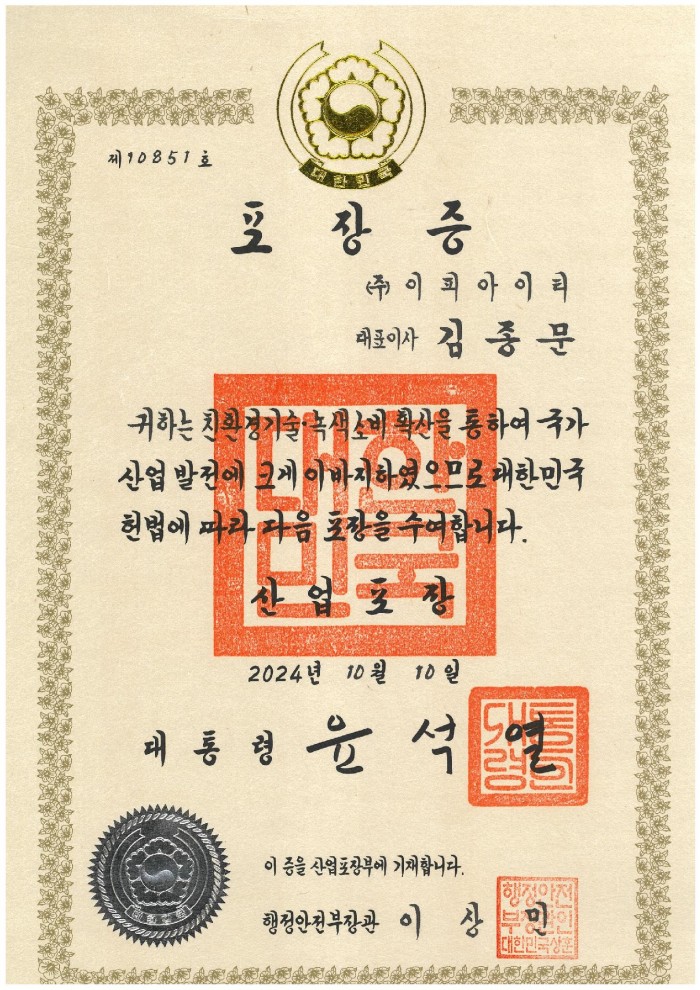 대한민국
제10851호
포장증
(주)이피아이티
대표이사 김종문
귀하는 친환경기술·녹색소비 확산을 통하여 국가
산업 발전에 크게 이바지하였으므로 대한민국
헌법에 따라 다음 포장을 수여합니다.
대한민국
산업포장
2024년 10월 10일
대통령 윤석열
대통령
이 증을 산업포장부에 기재합니다.
행정안전부장관 이상민
행정안전
부장관인
대한민국상훈
대한민국